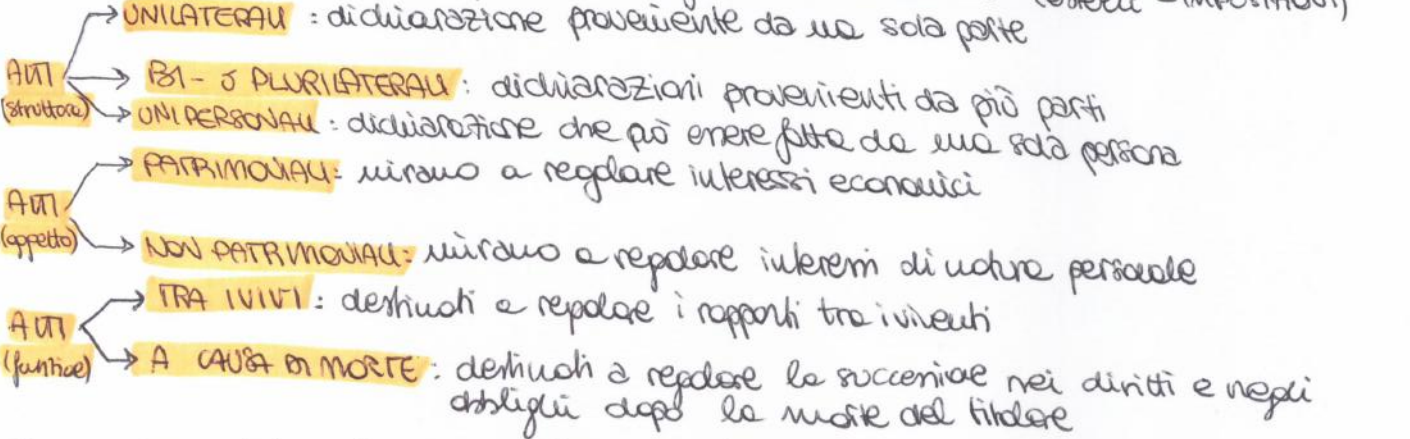 UNILATERALI : dichiarazione proveniente da una sola parte
ATTI (struttura)
BI- O PLURILATERALI : dichiarazioni provenienti da più parti
UNIPERSONALI : dichiarazione che può essere fatta da una sola persona
PATRIMONIALI: mirano a regolare interessi economici
ATTI (oggetto)
NON PATRIMONIALI: mirano a regolare interessi di natura personale
TRA I VIVI : destinati a regolare i rapporti tra i viventi
ATTI (funzione)
A CAUSA DI MORTE : destinati a regolare la successione nei diritti e negli
obblighi dopo la morte del titolare